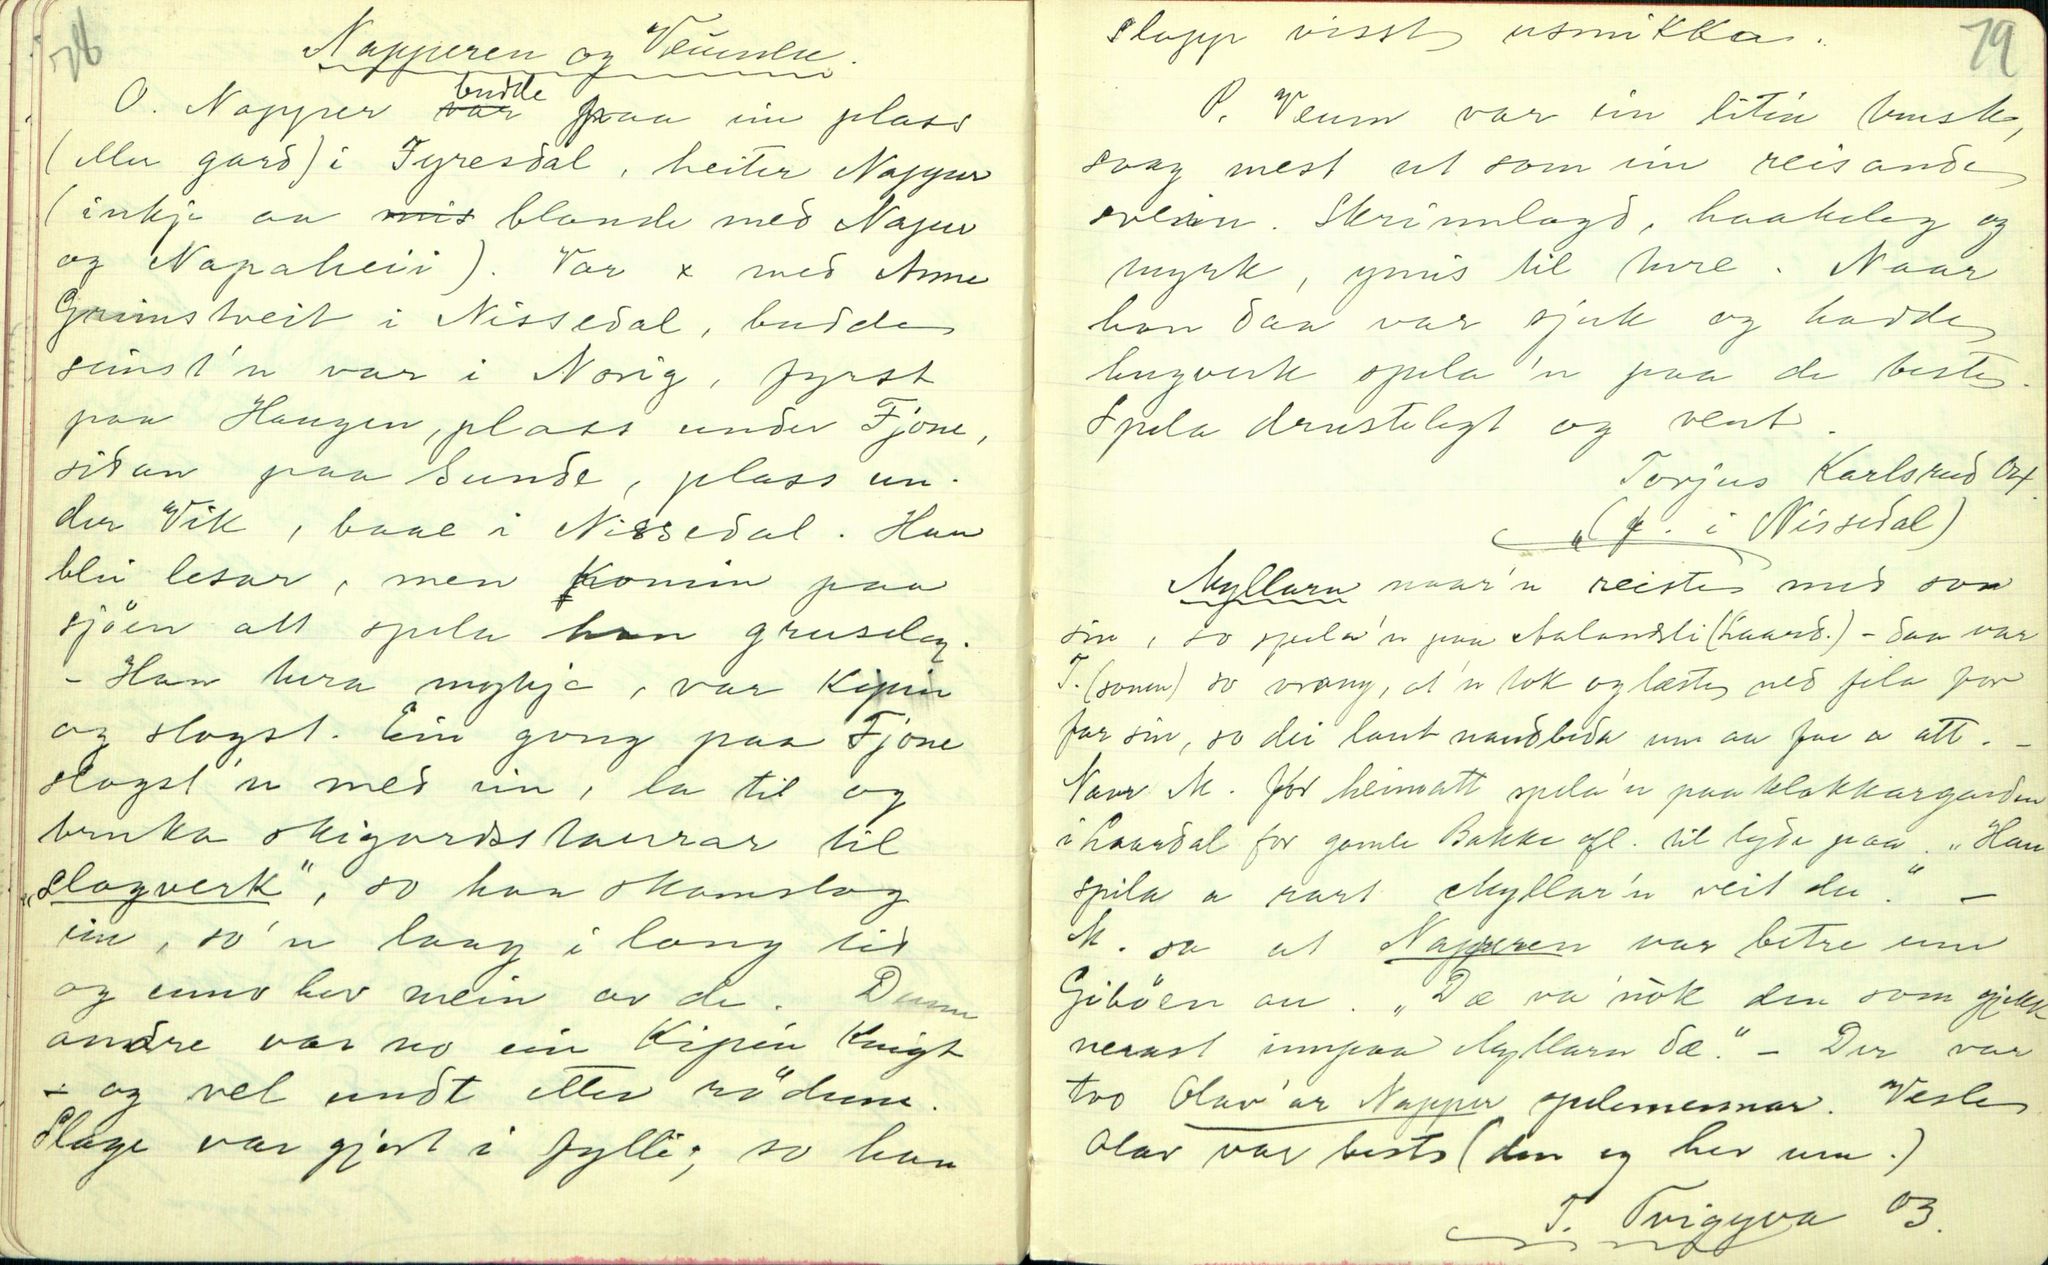 78
Napperen og Veumen.
O. Napper budde paa ein plass
(eller gard) i Fyresdal, heiter Napper
(inkje aa mis blande med Naper
og Napaheii). Var x med Anne
Grimstveit i Nissedal, budde
seinst'n var i Norig, fyrst
paa Haugen, plass under Fjone,
sidan paa Sunde, plass un-
der Vik, baae i Nissedal. Han
blei lesar, men komin paa
sjöen att spela han gruseleg.
- Han tura mykje, var kipin
og slogst. Ein gong paa Fjone
slogst'n med ein, la til og
bruka skigardsstaurar til
"slagverk", so han skamslog
ein, so'n laag i lang tid
og enno hev mein av de. Denne
andre var no ein kipin knigt
- og vel undt etter rödune.
Slage var gjort i fylli; so han
79
slapp visst usnikka.
P. Veum var ein litin brusk,
saag mest ut som ein reisande
svein. Skrinnlagd, haakeleg og
myrk, ymis til ture. Naar
han daa var sjuk og hadde
hugverk spela'n paa de beste.
Spela drustelegt og vent.
Torjus Karlsrud
"(f. i Nissedal)
Myllarn naar'n reiste med son
sin, so spela'n paa Aalandsli (Laard.) - daa var
T. (sonen) so vrang, at'n tok og læste ned fela for
far sin, so dei laut naudbeda um aa faa a att. -
Naar M. for heimatt spela'n paa klokkargarden
i Laardal for gamle Bakke ofl. til lyde paa. "Han
spila a rart Myllar'n veit du." -
M. sa at Napperen var betre enn
Giböen au. "Dæ va nok den som gjekk
nerast innpaa Myllarn dæ." - Der var
tvo Olav'ar Napper spelemennar. Vesle
Olav var beste (den eg hev um.)
T. Tvigyva 03.